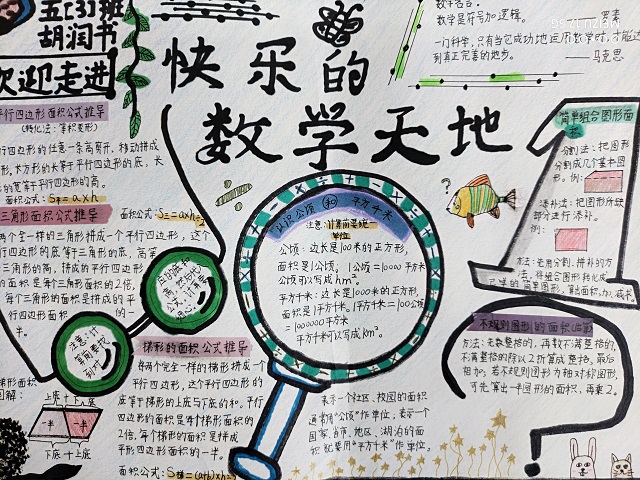 五[3]班
胡润书
欢迎走进
快乐的
数学天地
数学名言:
数学是符号加逻辑。
罗素
一门科学,只有当它成功地运用数学时,才能达
到真正完善的地步。
——马克思
平行四边形面积公式推导
(转化法:等积变形)
行四边形的任意一条高剪开,移动拼成
形,长方形的长等于平行四边形的底,长
的宽等于平行四边形的高。
面积公式:S平=a×h
三角形面积公式推导
面积公式:S三=a×h÷2
两个完全一样的三角形拼成一个平行四边形,这个
行四边形的底等于三角形的底,高等
三角形的高,拼成的平行四边形
的面积是每个三角形面积的2倍,
每个三角形的面积是拼成的平
行四边形面积的一
半。
注意:计
算简要找
梯形的面积公式推导
将两个完全一样的梯形拼成一个
平行四边形,这个平行四边形的
底等于梯形的上底与下底的和。平行
四边形的面积是每个梯形面积的
2倍,每个梯形的面积是拼成
平形四边形面积的一半。
面积公式:S梯=(a+b)×h÷2
梯形面积
图解:
上底+下底
一半
一半
下底+上底
认识公顷(和)平方千米
注意:计算前要统一
单位
公顷:边长是100米的正方形,
面积是1公顷,1公顷=10000平方米
公顷可以写成hm².
平方千米:边长是1000米的正方形,
面积是1平方千米,1平方千米=100公顷
=1000000平方米
平方千米可以写成km².
表示一个社区、校园的面积
通常用“公顷”作单位,表示一个
国家、省市、地区、湖泊的面
积就要用“平方千米”作单位。
?
简单组合图形面
积
分割法:把图形
分割成几个基本图
形。例:
添补法:把图形所缺
部分进行添补。
例:
方法:运用分割、拼补的方
法,将组合图形转化成
已学的简单图形,算出面积,加、减

不规则图形的面积
方法:先数整格的,再数不满整格的,
不满整格的除以2折算成整格,最后
相加;若不规则图形为轴对称图形,
可先算出一半图形的面积,再乘2。